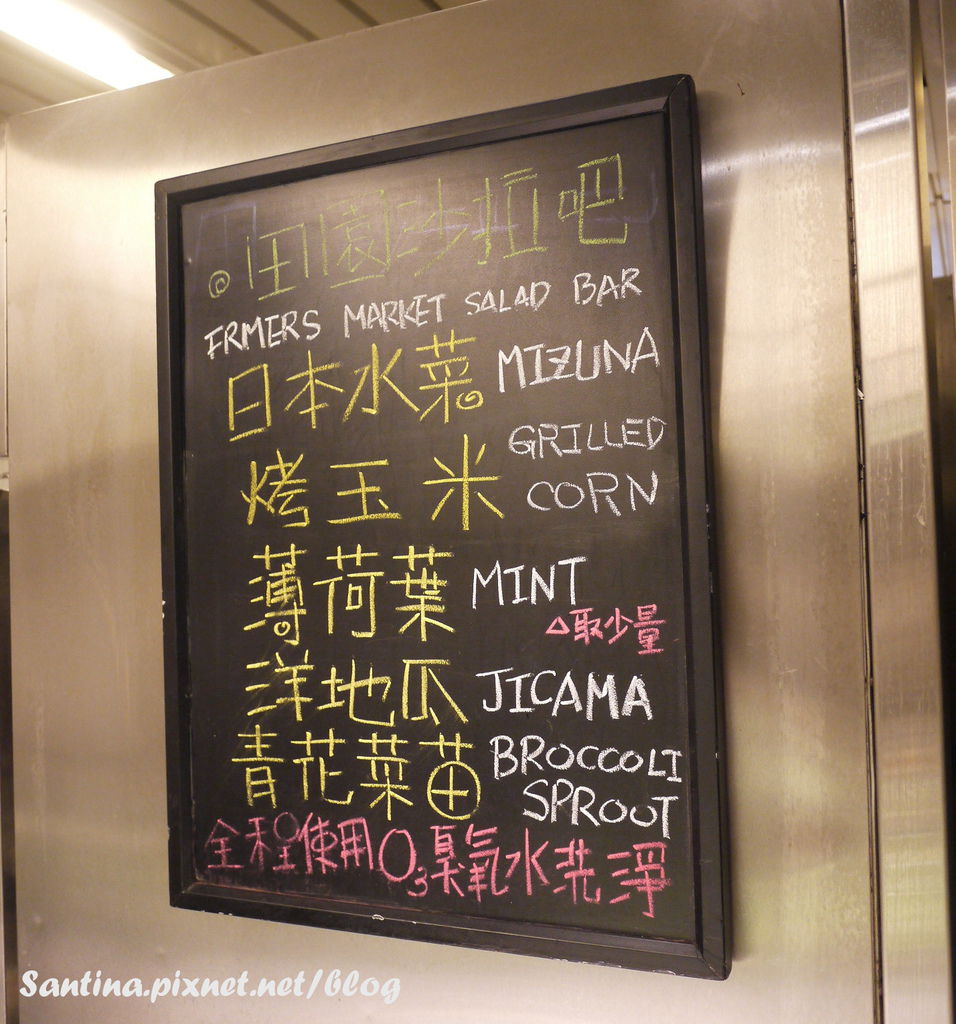 @田園沙拉吧
FRMERS MARKET SALAD BAR
日本水菜 MIZUNA
烤玉米 GRILLED CORN
薄荷葉 MINT
△取少量
洋地瓜 JICAMA
青花菜苗 BROCCOLI SPROUT
全程使用O3臭氧水洗淨
Santina.pixnet.net/blog